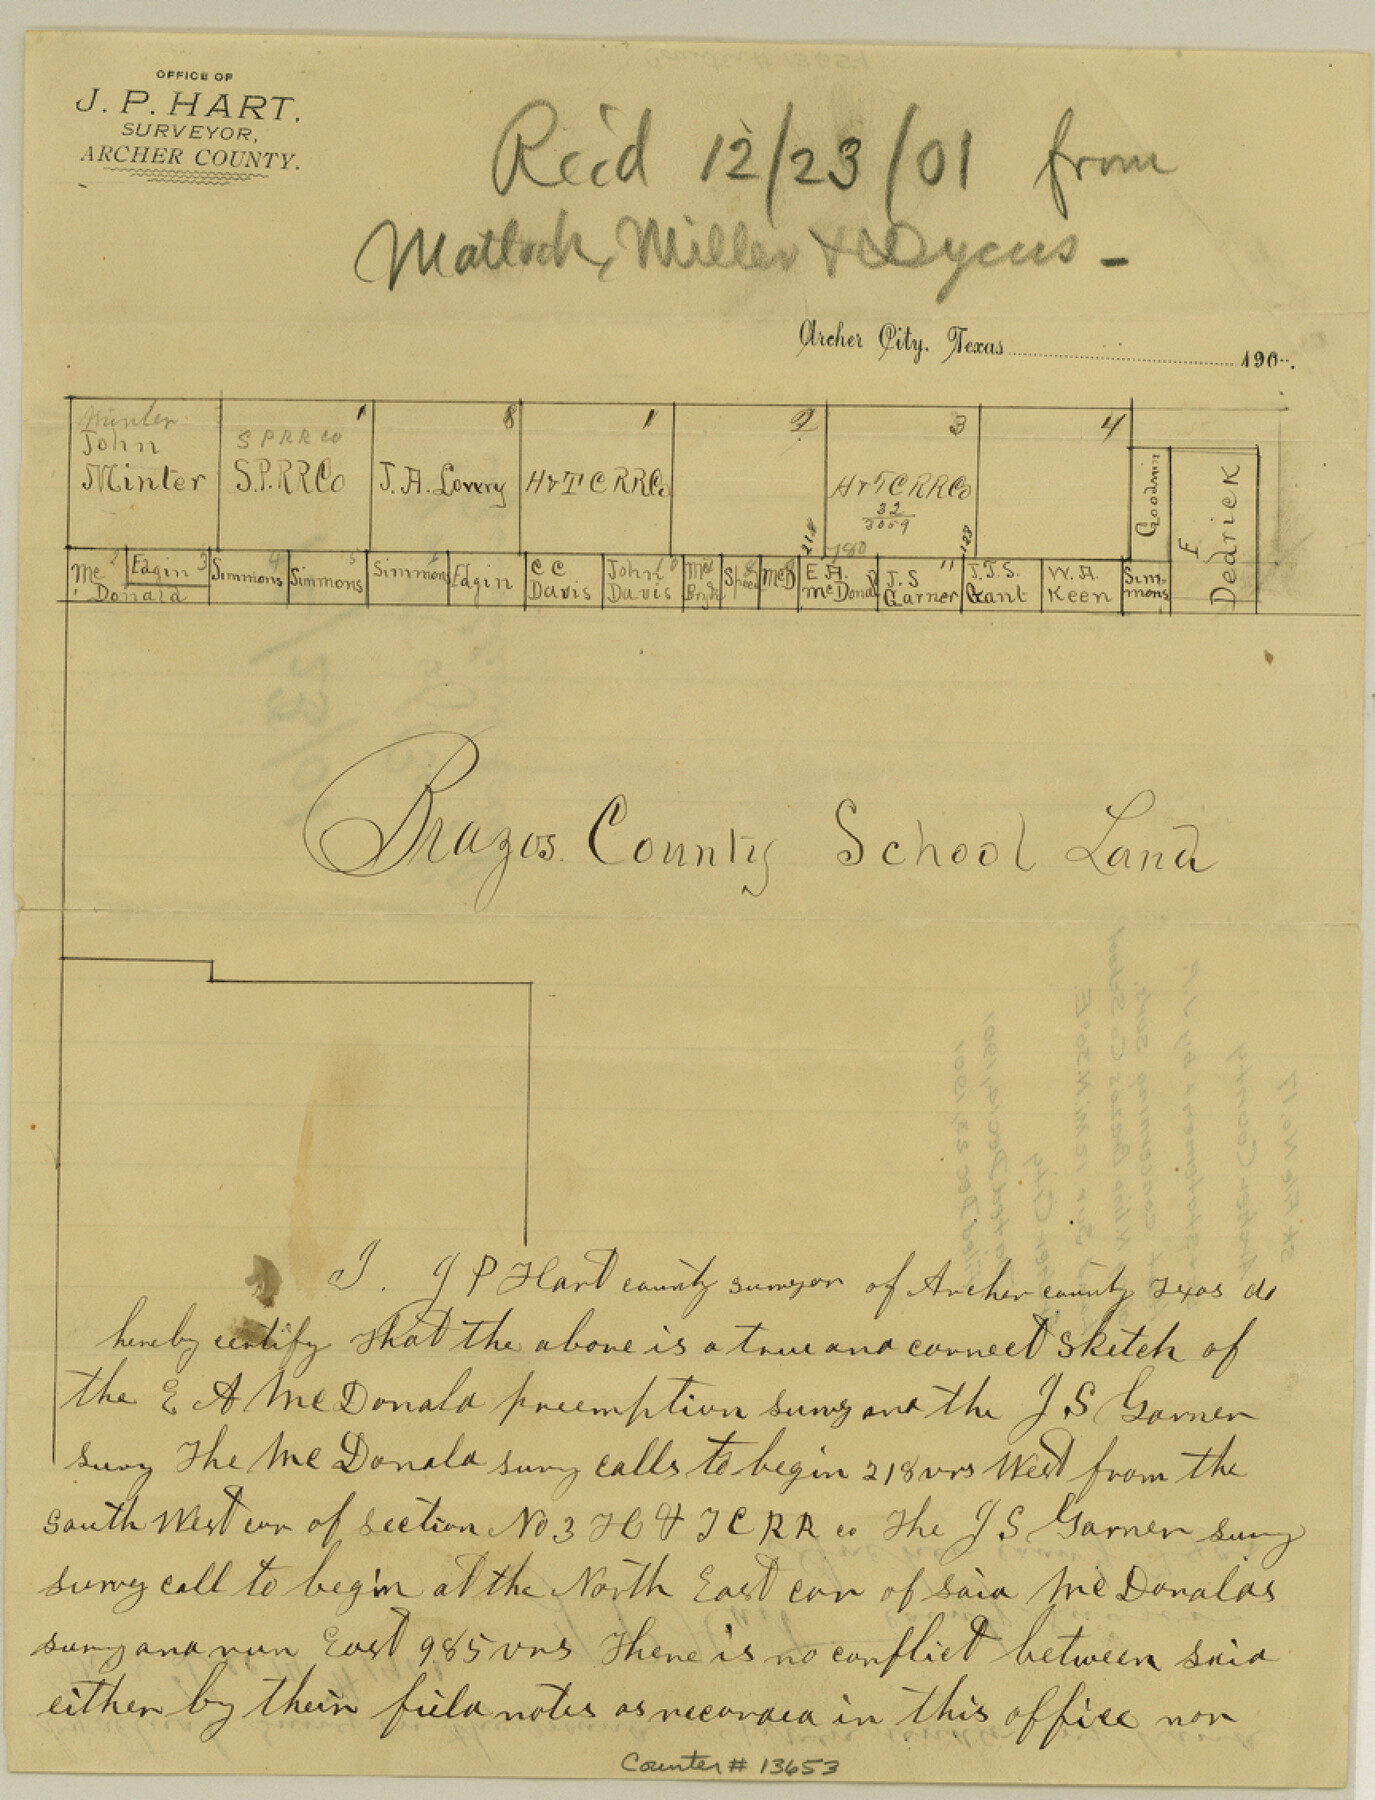 OFFICE OF
J. P. HART.
SURVEYOR,
ARCHER COUNTY.
Rec'd 12/23/01 from
Matlock, Miller & Dycus -
Archer City, Texas 190
Minter 1 8 1 2 3 4
John
Minter
S P R R Co
S.P.RR Co
J. A. Lowry
H & T C RR Co
H & T C RR Co
32
3059
Goodwin
F
Dedrick
218 780 123
Mc 2
Donald
Edgin 3
Simmons 4
Simmons 5
Simmons
Edgin
C C
Davis
John
Davis
Mc
Speer
McD
E A.
McDonald
J. S 11
Garner
J. T. S.
Grant
W. A.
Keen
Sim-
mons
Brazos County School Land
I. J P Hart county surveyor of Archer county Texas do
hereby certify that the above is a true and correct sketch of
the E A McDonald preemption survy and the J S Garner
survy The McDonald survy calls to begin 218 vrs West from the
South West cor of Section No 3 H & T C R R co The J S Garner survy
survey call to begin at the North East cor of said McDonalds
survy and run East 985 vrs There is no conflict between said
either by their field notes as recorded in this office nor
Counter # 13653